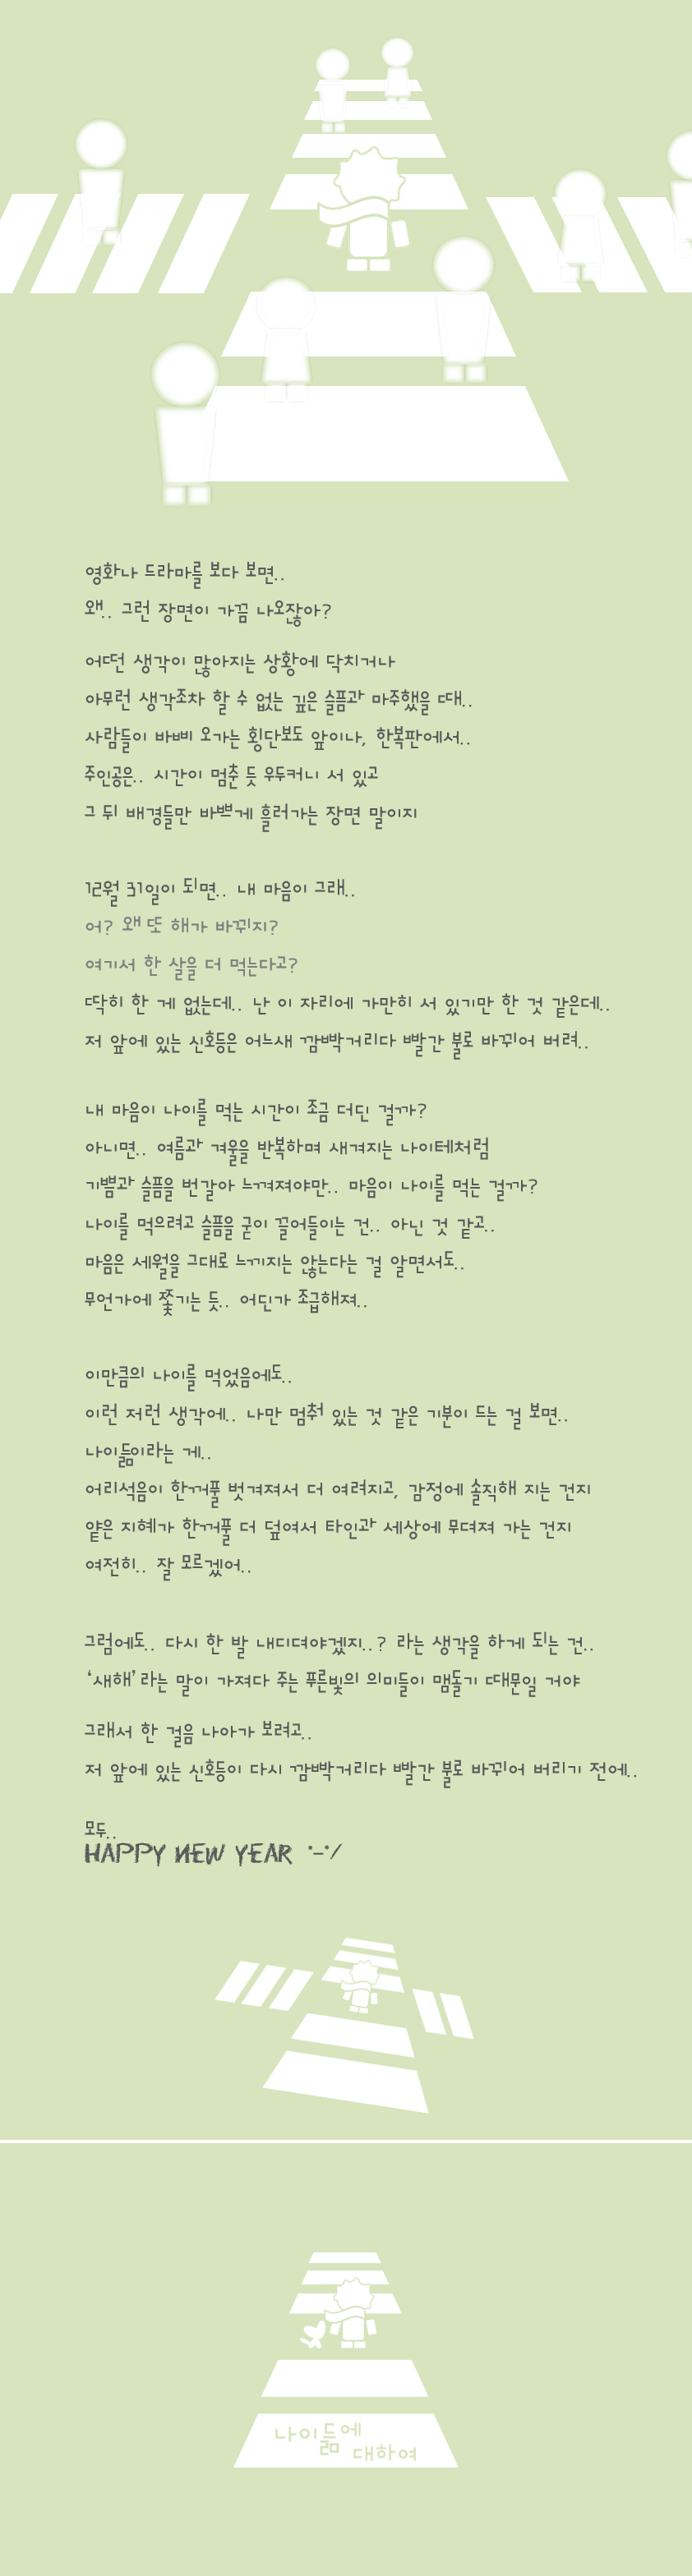 영화나 드라마를 보다 보면..
왜.. 그런 장면이 가끔 나오잖아?
어떤 생각이 많아지는 상황에 닥치거나
아무런 생각조차 할 수 없는 깊은 슬픔과 마주했을 때..
사람들이 바삐 오가는 횡단보도 앞이나, 한복판에서..
주인공은.. 시간이 멈춘 듯 우두커니 서 있고
그 뒤 배경들만 바쁘게 흘러가는 장면 말이지
12월 31일이 되면.. 내 마음이 그래..
어? 왜 또 해가 바뀌지?
여기서 한 살을 더 먹는다고?
딱히 한 게 없는데.. 난 이 자리에 가만히 서 있기만 한 것 같은데..
저 앞에 있는 신호등은 어느새 깜빡거리다 빨간 불로 바뀌어 버려..
내 마음이 나이를 먹는 시간이 조금 더딘 걸까?
아니면.. 여름과 겨울을 반복하며 새겨지는 나이테처럼
기쁨과 슬픔을 번갈아 느껴져야만.. 마음이 나이를 먹는 걸까?
나이를 먹으려고 슬픔을 굳이 끌어들이는 건.. 아닌 것 같고..
마음은 세월을 그대로 느끼지는 않는다는 걸 알면서도..
무언가에 쫓기는 듯.. 어딘가 조급해져..
이만큼의 나이를 먹었음에도..
이런 저런 생각에.. 나만 멈춰 있는 것 같은 기분이 드는 걸 보면..
나이듦이라는 게..
어리석음이 한꺼풀 벗겨져서 더 여려지고, 감정에 솔직해 지는 건지
얕은 지혜가 한꺼풀 더 덮여서 타인과 세상에 무뎌져 가는 건지
여전히.. 잘 모르겠어..
그럼에도.. 다시 한 발 내디뎌야겠지..? 라는 생각을 하게 되는 건..
‘새해’라는 말이 가져다 주는 푸른빛의 의미들이 맴돌기 때문일 거야
그래서 한 걸음 나아가 보려고..
저 앞에 있는 신호등이 다시 깜빡거리다 빨간 불로 바뀌어 버리기 전에..
모두..
HAPPY NEW YEAR *-*/
나이듦에
대하여